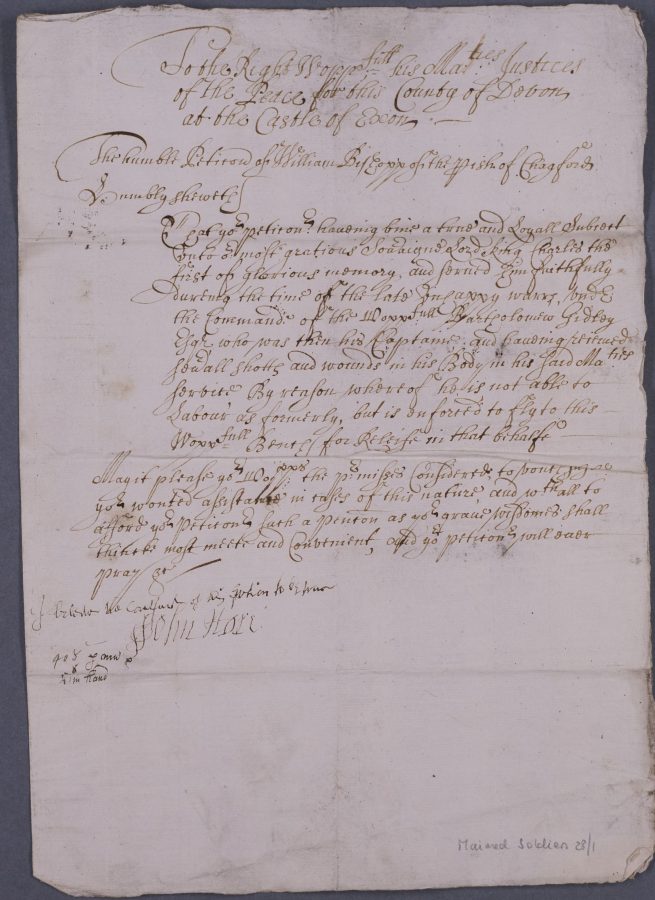 To the Right Wopp:full his Maties Justices
of the Peace for this County of Devon
at the Castle of Exon
The humble Peticon of William Bishopp of the pish of Chagford
Humbly sheweth
That yor peticonr haveing bine a true and Loyall Subject
unto or most gratious Souraigne Lord King Charles the
first of glorious memory, and served him faithfully
dureing the time of the late unhappy warrs, under
the Command of the Wopp:full Bartholomew Gidley
Esqr who was then his Captaine, and haveing received
sevrall shotts and wounds in his Body in his said Maties
service By reason whereof he is not able to
Labour as formerly, but is enforced to fly to this
Wopp:full Bench for Releife in that behalfe
May it please yor Wopps: the pmisses Considered to
yor wonted assistance in cases of this nature and wthall to
afford yor peticonr such a pencon as yor grave wisdomes shall
thinke most meete and Convenient, And yor peticonr will ever
pray &c
I beleve the Contents of this petition to be true
John Hore
40s p ann
in hand
Maimed Soldiers 23/1